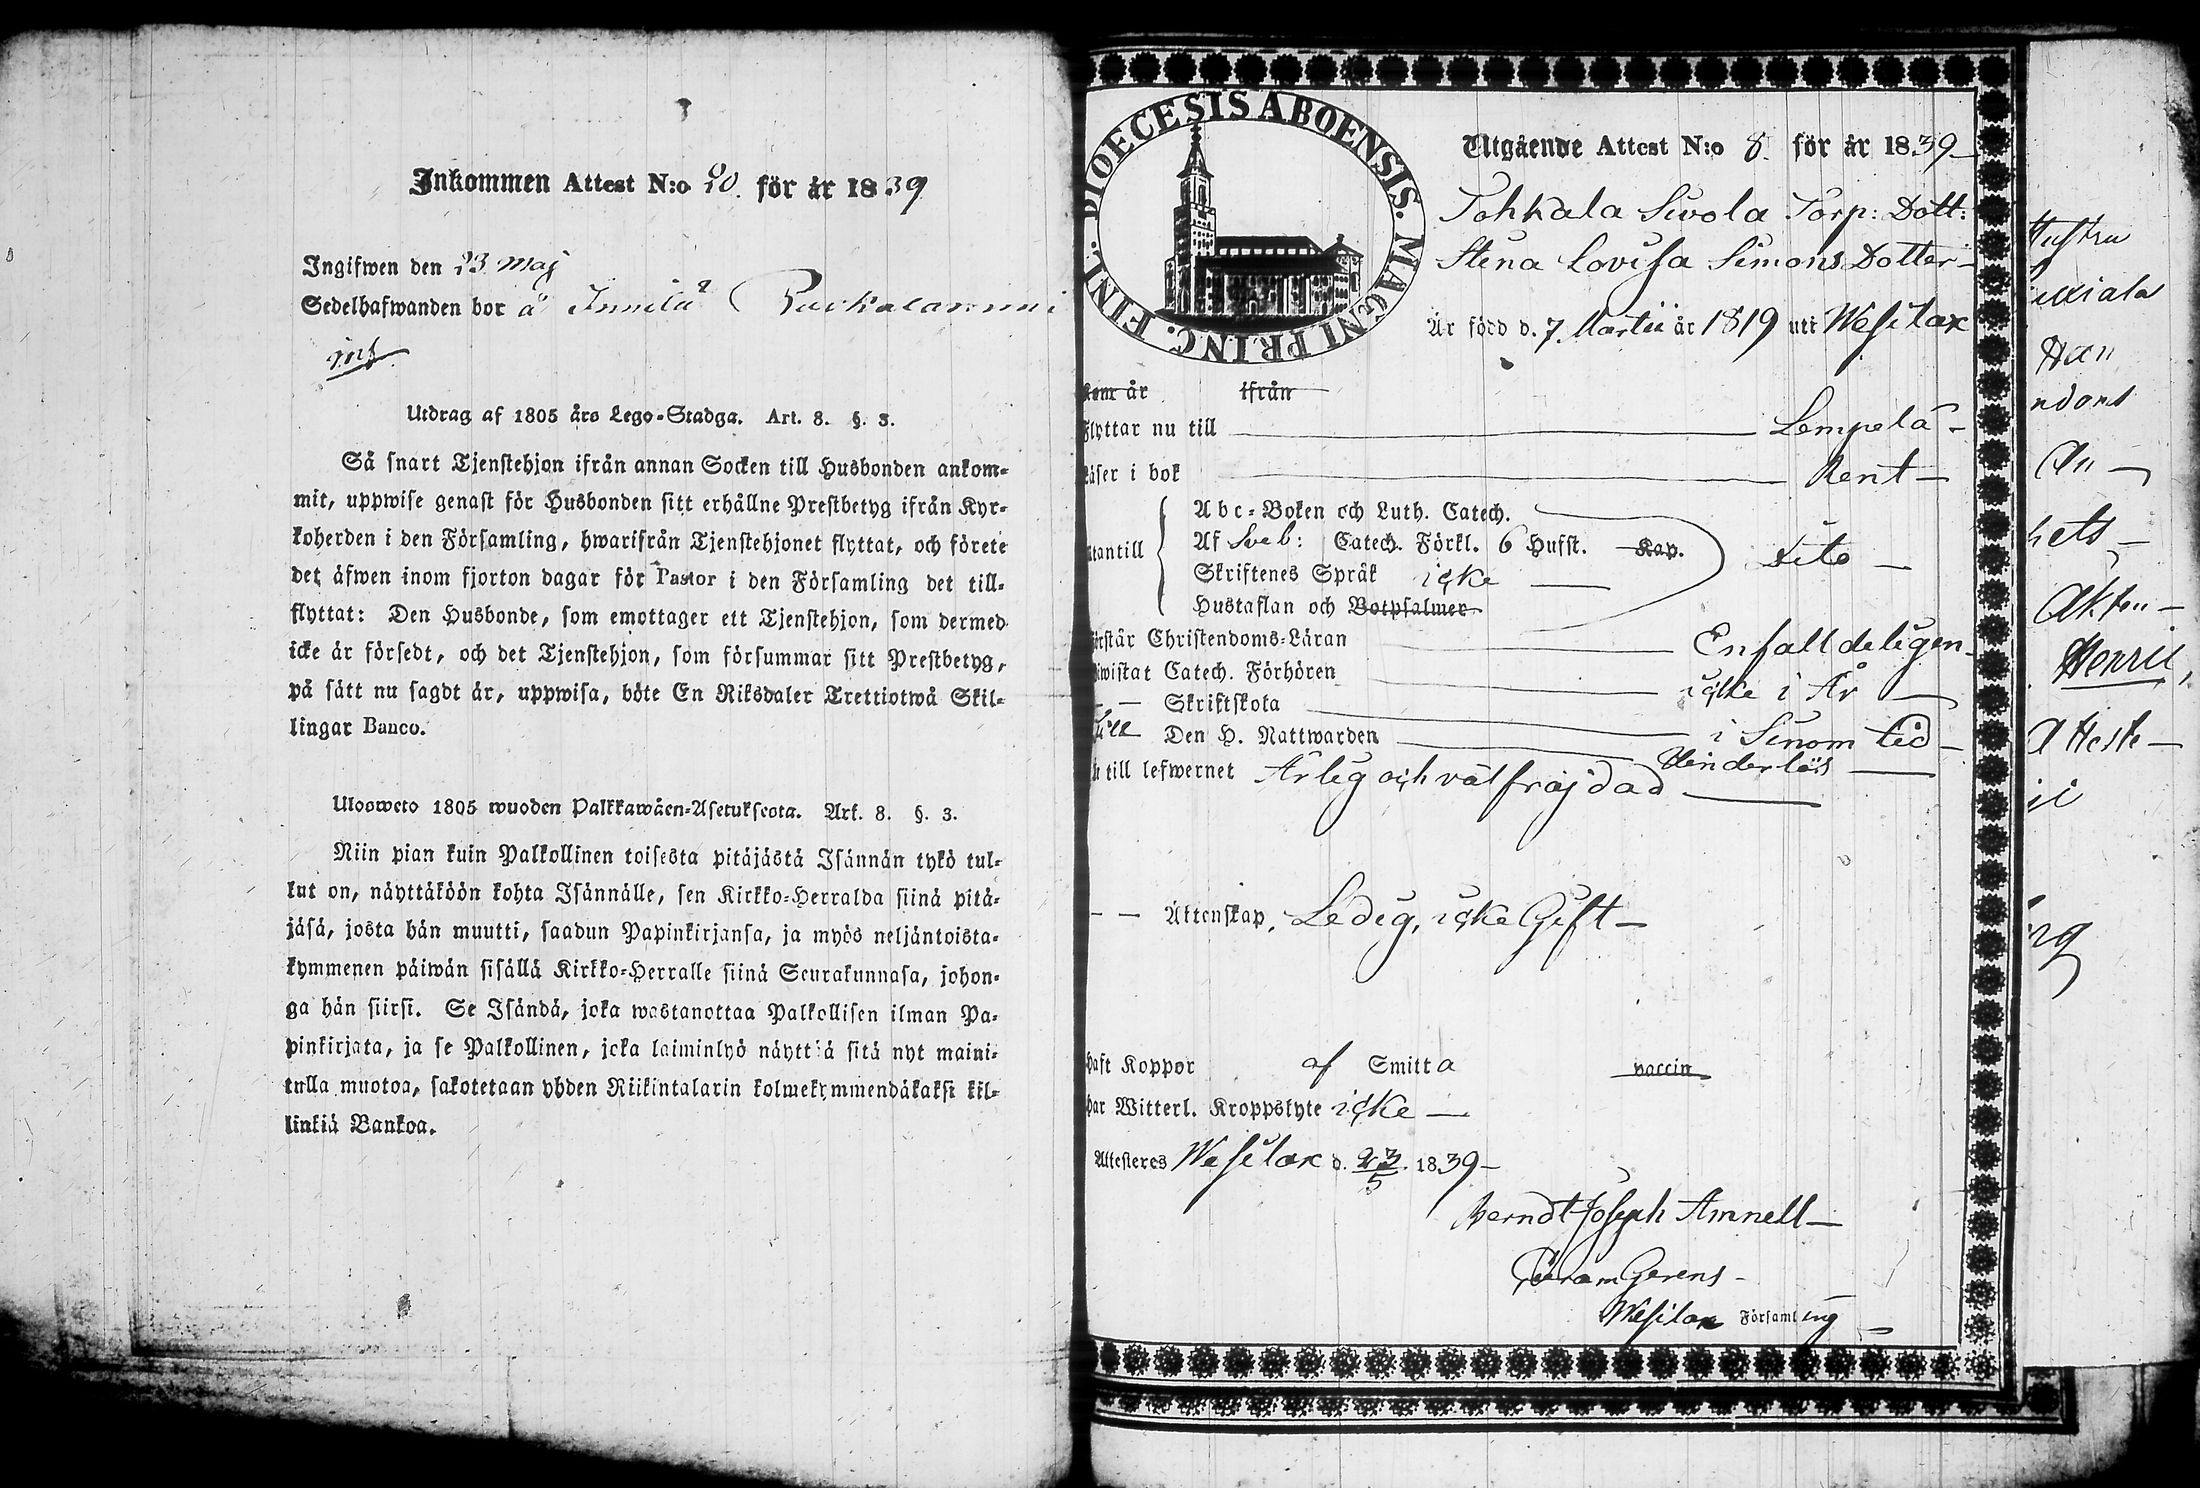 Inkommen Attest N:o 20. för år 1839
Ingifwen den 23 Maj
Sedelhafwanden bor å Innilä
Utdrag af 1805 års Lego-Stadga. Art. 8. §. 3.
Så snart Tjenstehjon ifrån annan Socken till Husbonden ankom-
mit, uppwise genast för Husbonden sitt erhållne Prestbetyg ifrån Kyr-
koherden i den Församling, hwarifrån Tjenstehjonet flyttat, och förete
det äfwen inom fjorton dagar för Pastor i den Församling det till-
flyttat: Den Husbonde, som emottager ett Tjenstehjon, som dermed
icke är försedt, och det Tjenstehjon, som försummar sitt Prestbetyg,
på sätt nu sagdt är, uppwisa, böte En Riksdaler Trettiotwå Skil-
lingar Banco.
Ulosweto 1805 wuoden Palkkawäen-Asetuksesta. Art. 8. §. 3.
Niin pian kuin Palkollinen toisesta pitäjästä Isännän tykö tul-
lut on, näyttäköön kohta Isännälle, sen Kirkko-Herralda siinä pitä-
jäsä, josta hän muutti, saadun Papinkirjansa, ja myös neljäntoista-
kymmenen päiwän sisällä Kirkko-Herralle siinä Seurakunnasa, johon-
ga hän siirsi. Se Isändä, joka wastanottaa Palkollisen ilman Pa-
pinkirjata, ja se Palkollinen, joka laiminlyö näyttiä sitä nyt maini-
tulla muotoa, sakotetaan yhden Riikintalarin kolmekymmendäkaksi kil-
linkiä Bankoa.
DIOECESIS ABOENSIS. MAGNI PRINC. FINL.
Utgående Attest N:o 8. för år 1839
Tohkala Sivola Torp: Dott:
Stina Lovisa Simons Dotter
Är född d. 7 Martii år 1819 uti Wesilax
Kom år ifrån
Flyttar nu till Lempelä
Läser i bok Rent
Utantill
Abc-Boken och Luth. Catech.
Af Sveb: Catech. Förkl. 6 Hufst. Kap.
Dito
Skriftenes Språk icke
Hustaflan och Botpsalmer
Förstår Christendoms-Läran Enfalldeligen
Bewistat Catech. Förhören icke i År
Skriftskola
Den H. Nattwarden i Sinom tid
Hinderlös
till lefwernet Ärlig och välfräjdad
Äktenskap, Ledig, icke Gift
Haft Koppor af Smitta vaccin
Har Witterl. Kroppslyte icke
Attesteres Wesilax d. 23/5 1839
Berndt Joseph Amnell
Wesilax Församling
Hustru
Han
Än
Henric